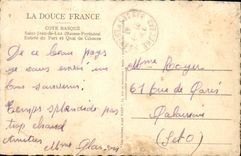 LA DOUCE FRANCE
COTE BASQUE
Saint-Jean-de-Luz (Basses-Pyrénées)
Entrée du Port et Quai de Ciboure
De ce beau pays
je vous envoie un
bon souvenir.
Temps splendide pas
trop chaud
Amitiés
Mme
Mme Royer
61 rue de Paris
Palaiseau
(S et O)